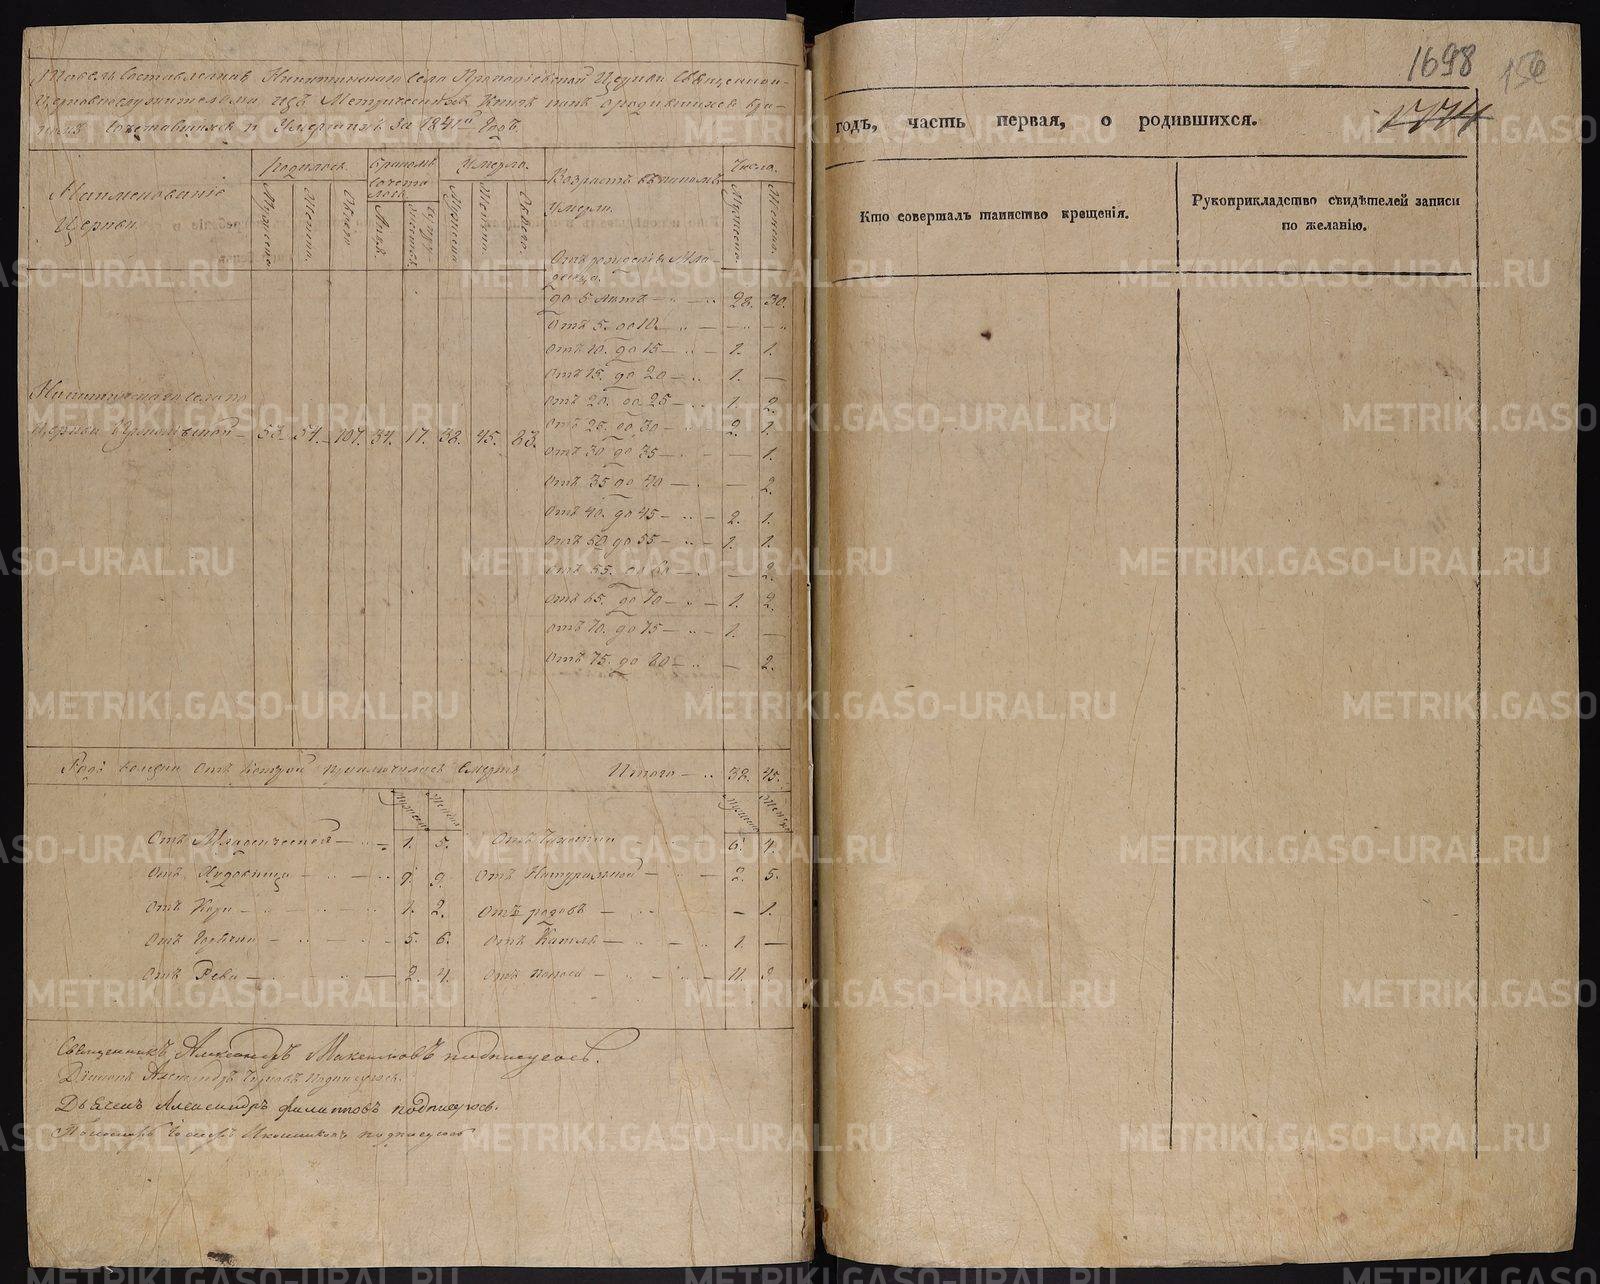 Табель Составленная Никитинскаго села Церкви Священно-
Церковнослужителями изъ Метрическихъ Книгъ о родившихся бра-
Сочетавшихся и Умершихъ За 1841й Годъ.
Наименованіе Церкви.
Родилось.
Мужеска. Женска. Обоего
Бракомъ Сочеталось
Умерло.
Мужеска. Женска. Обоего.
Возрастъ въ какомъ Умерли.
Числа.
Мужеска. Женска.
Отъ рожденія Мла-
денца.
до 5 лѣтъ 28. 30.
Отъ 5. до 10. — —
Отъ 10. до 15 — 1. 1.
Отъ 15. до 20 — 1. —
Отъ 20. до 25 — 1. 2.
Отъ 25. до 30 — 2. 1.
Отъ 30 до 35 — — 1.
Отъ 35 до 40 — — 2.
Отъ 40. до 45 — 2. 1.
Отъ 50 до 55 — 1. 1.
Отъ 55. до 60 — — 2.
Отъ 65. до 70 — 1. 2.
Отъ 70. до 75 — 1. —
Отъ 75. до 80 — — 2.
Никитинскаго села по
Церкви 53. 54. 107. 34. 17. 38. 45. 83.
Родъ болѣзни Отъ которой приключилась Смерть
Итого — 38. 45.
Мужеска Женска
Мужеска Женска
Отъ Младенческой — 1. 5.
Отъ Чахотки 6. 4.
Отъ 9. 9.
Отъ Натуральной — 2. 5.
Отъ Кори — 1. 2.
Отъ родовъ — — 1.
Отъ Горячки — 5. 6.
Отъ Кашля — 1. —
Отъ Рева — 2. 4.
Отъ Поноса — 11. 9.
Священникъ Александръ Максимовъ подписуюсь.
Діаконъ Александръ подписуюсь.
Дьячекъ Александръ Филатовъ подписуюсь.
Пономарь подписуюсь
1698
156
1774
годъ, часть первая, о родившихся.
Кто совершалъ таинство крещенія.
Рукоприкладство свидѣтелей записи
по желанію.
METRIKI.GASO-URAL.RU